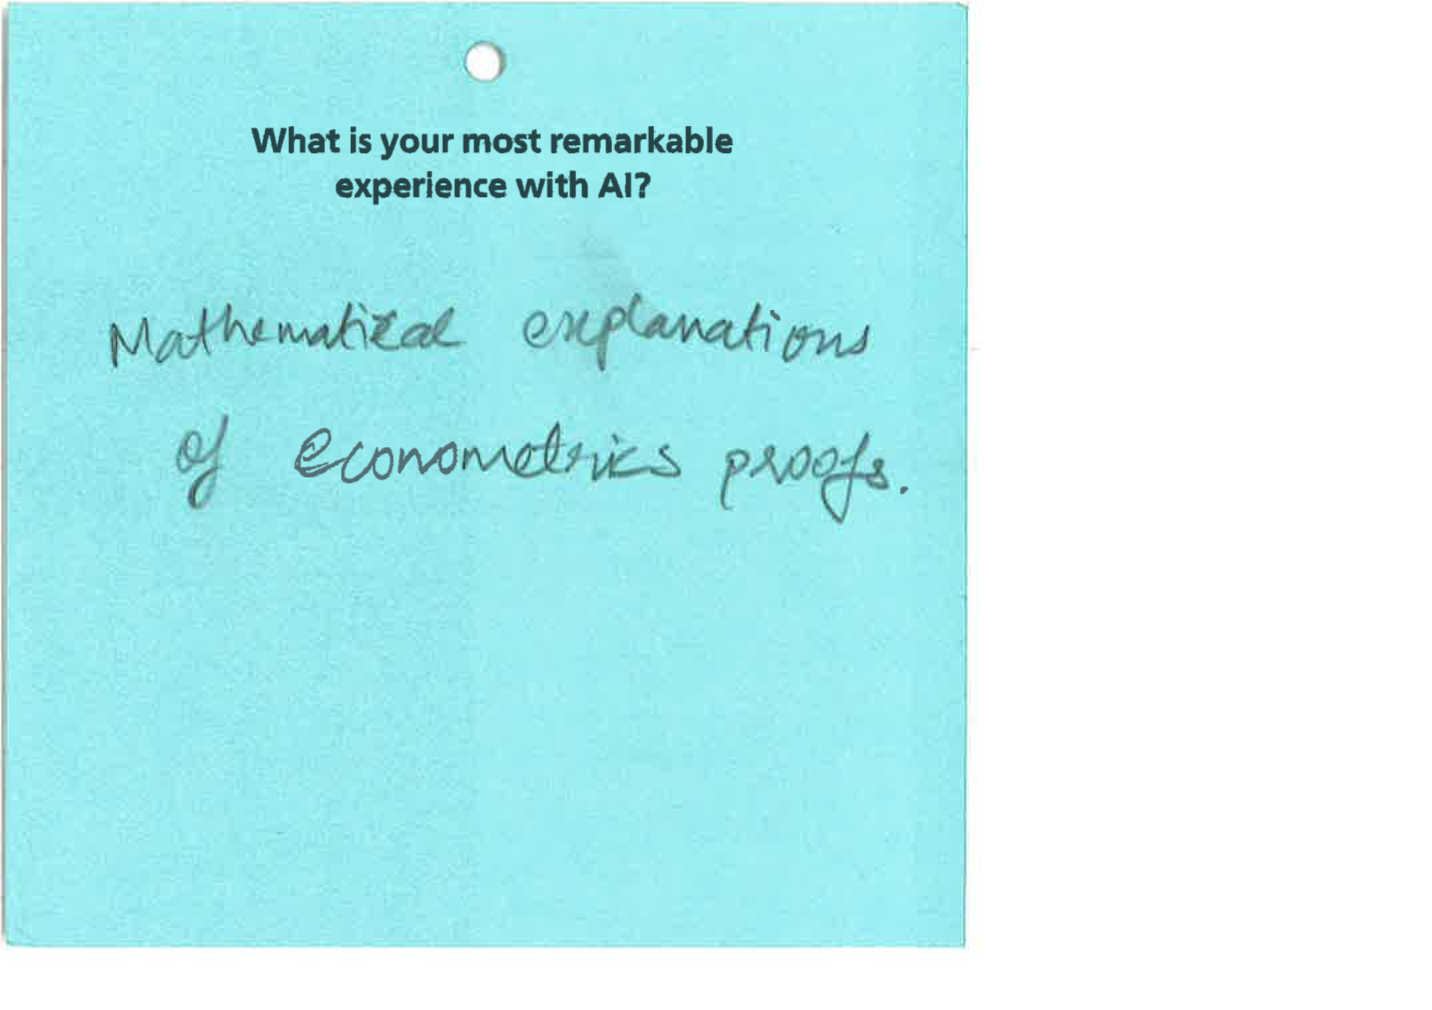 What is your most remarkable
experience with AI?
Mathematical explanations
of econometrics proofs.